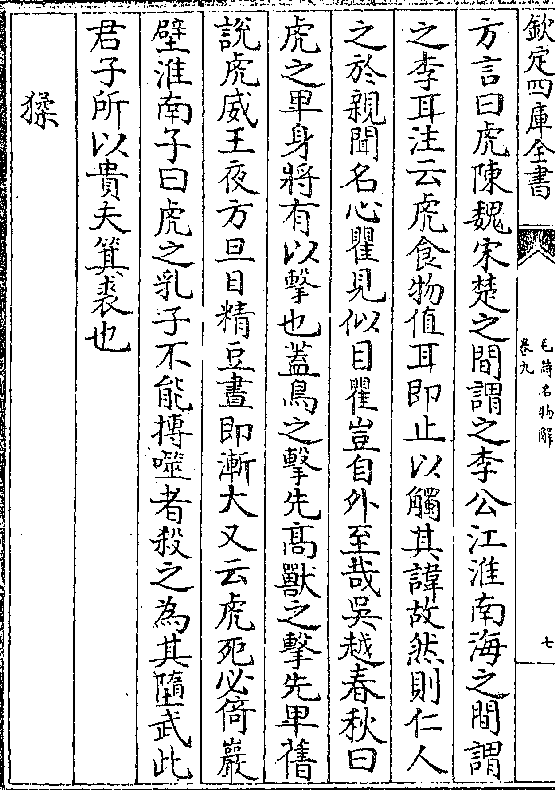 欽定四庫全書
毛詩名物解
卷九
七
方言曰虎陳魏宋楚之間謂之李公江淮南海之間謂
之李耳注云虎食物值耳即止以觸其諱故然則仁人
之於親聞名心瞿見似目瞿豈自外至哉吳越春秋曰
虎之卑身將有以擊也蓋鳥之擊先高獸之擊先卑舊
說虎威王夜方旦目精豆晝即漸大又云虎死必倚巖
壁淮南子曰虎之乳子不能摶噬者殺之為其墮武此
君子所以貴夫箕裘也
猱